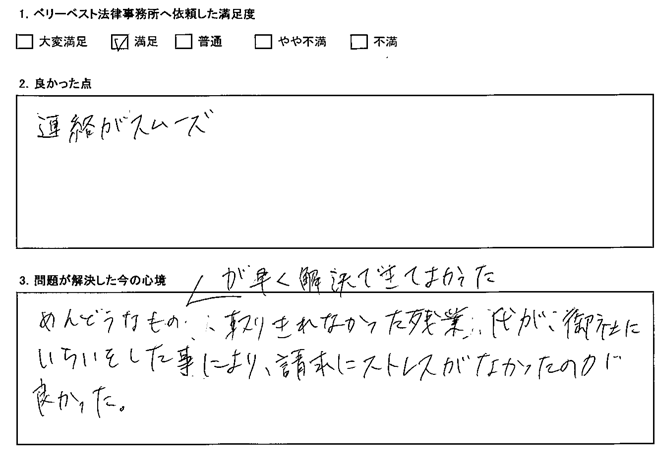 1. ベリーベスト法律事務所へ依頼した満足度
□ 大変満足 ☑ 満足 □ 普通 □ やや不満 □ 不満
2. 良かった点
連絡がスムーズ
3. 問題が解決した今の心境
が早く解決できてよかった
めんどうなもの 取りきれなかった残業代が、御社に
いらいをした事により、請求にストレスがなかったのが
良かった。